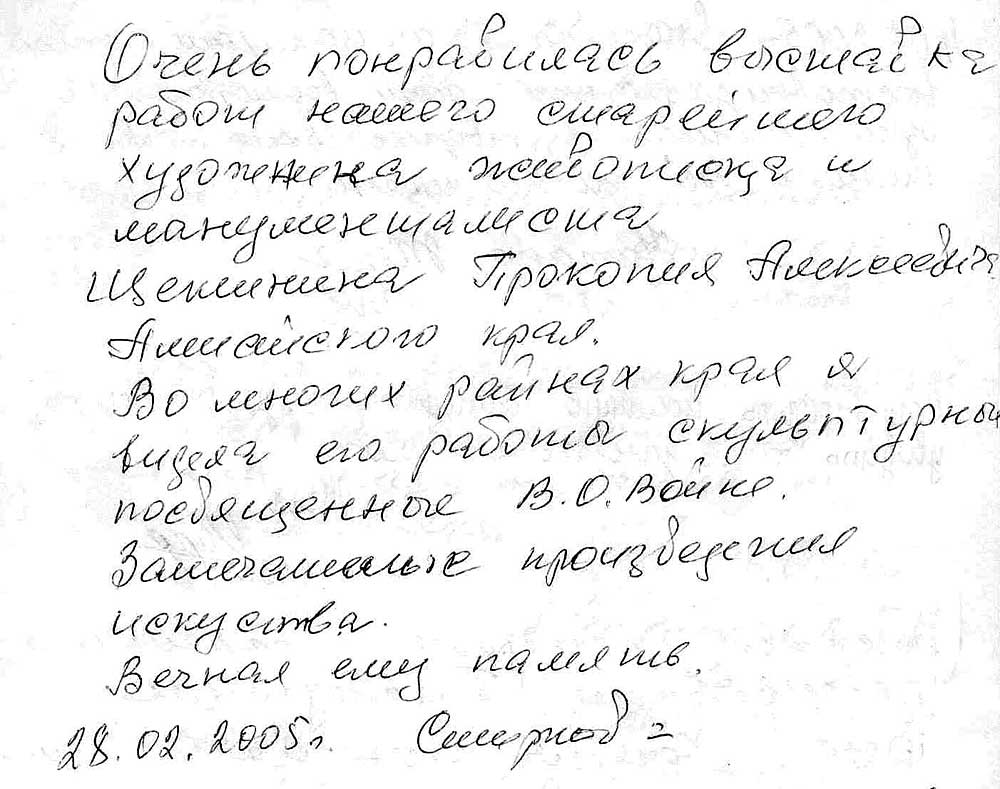 Очень понравилась выставка
работ нашего старейшего
художника живописца и
манументалиста
Щетинина Прокопия Алексеевича
Алтайского края.
Во многих районах края я
видела его работы скульптурные
посвященные В.О.Войне.
Замечательные произведения
искуства.
Вечная ему память.
28.02.2005г. Смирнов